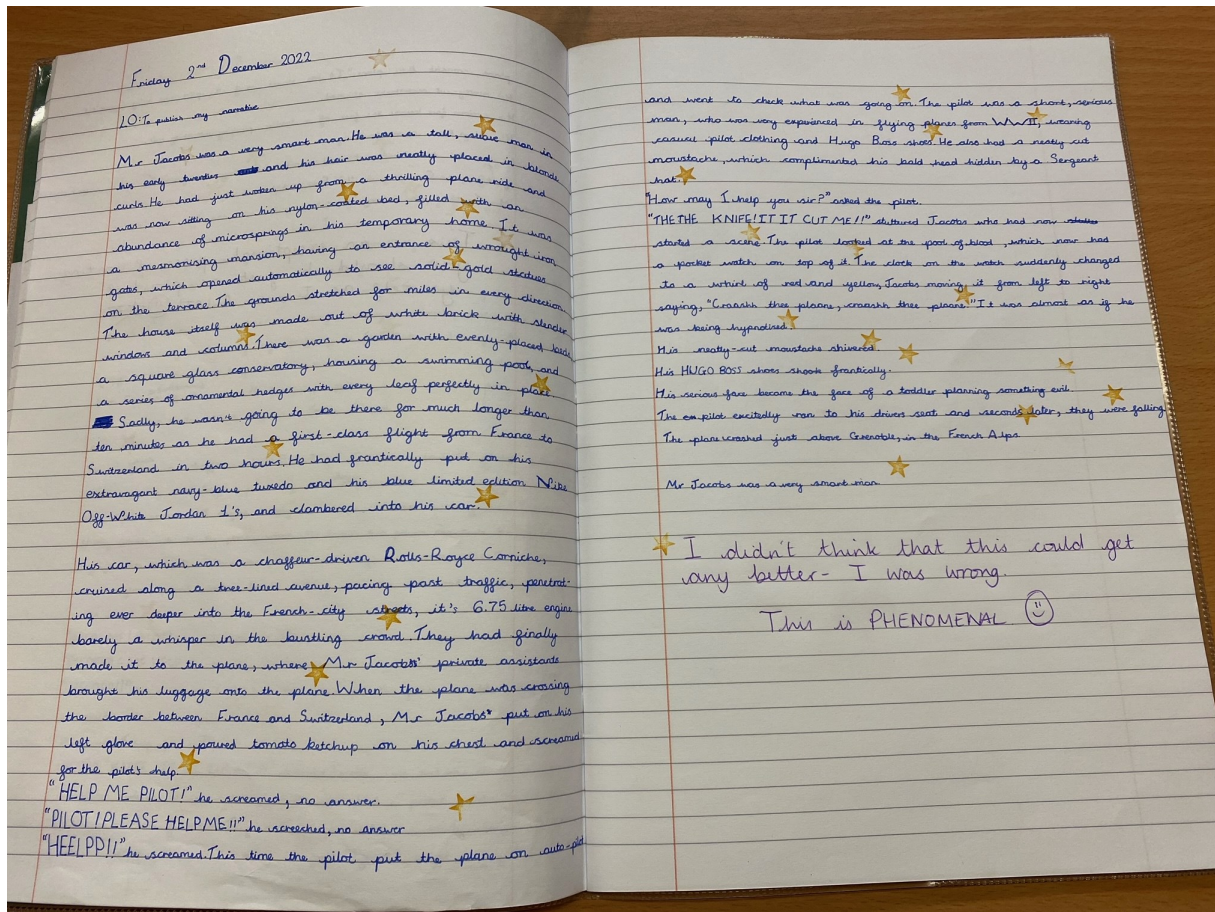 Friday 2nd December 2022
LO: To publish my narrative
Mr Jacobs was a very smart man. He was a tall, suave man in
his early twenties and his hair was neatly placed in blonde
curls. He had just woken up from a thrilling plane ride and
was now sitting on his nylon-coated bed, filled with an
abundance of microsprings in his temporary home. It was
a mesmorising mansion, having an entrance of wrought iron
gates, which opened automatically to see solid-gold statues
on the terrace. The grounds stretched for miles in every direction.
The house itself was made out of white brick with slender
windows and columns. There was a garden with evenly-placed beds
a square glass conservatory, housing a swimming pool, and
a series of ornamental hedges with every leaf perfectly in place.
Sadly, he wasn't going to be there for much longer than
ten minutes as he had a first-class flight from France to
Switzerland in two hours. He had frantically put on his
extravagant navy-blue tuxedo and his blue limited edition Nike
Off-White Jordan 1's, and clambered into his car.
His car, which was a chaffeur-driven Rolls-Royce Corniche,
cruised along a tree-lined avenue, pacing past traffic, penetrat-
ing ever deeper into the French-city streets, it's 6.75 litre engine
barely a whisper in the bustling crowd. They had finally
made it to the plane, where Mr Jacobs' private assistants
brought his luggage onto the plane. When the plane was crossing
the border between France and Switzerland, Mr Jacobs' put on his
left glove and poured tomato ketchup on his chest and screamed
for the pilot's help.
"HELP ME PILOT!" he screamed, no answer.
"PILOT! PLEASE HELP ME!!" he screeched, no answer
"HEELPP!!" he screamed. This time the pilot put the plane on auto-pilot
and went to check what was going on. The pilot was a short, serious
man, who was very experienced in flying planes from WWII, wearing
casual pilot clothing and Hugo Boss shoes. He also had a neatly cut
moustache, which complimented his bald head hidden by a Sergeant
hat.
"How may I help you sir?" asked the pilot.
"THE THE KNIFE! IT IT CUT ME!!" stuttered Jacobs who had now
started a scene. The pilot looked at the pool of blood, which now had
a pocket watch on top of it. The clock on the watch suddenly changed
to a whirl of red and yellow, Jacobs moving it from left to right
saying, "Craashh thee plaane, craashh thee plaane." It was almost as if he
was being hypnotised.
His neatly-cut moustache shivered.
His HUGO BOSS shoes shook frantically.
His serious face became the face of a toddler planning something evil.
The ex-pilot excitedly ran to his drivers seat and seconds later, they were falling
The plane crashed just above Grenoble, in the French Alps
Mr Jacobs was a very smart man
I didn't think that this could get
any better- I was wrong.
This is PHENOMENAL